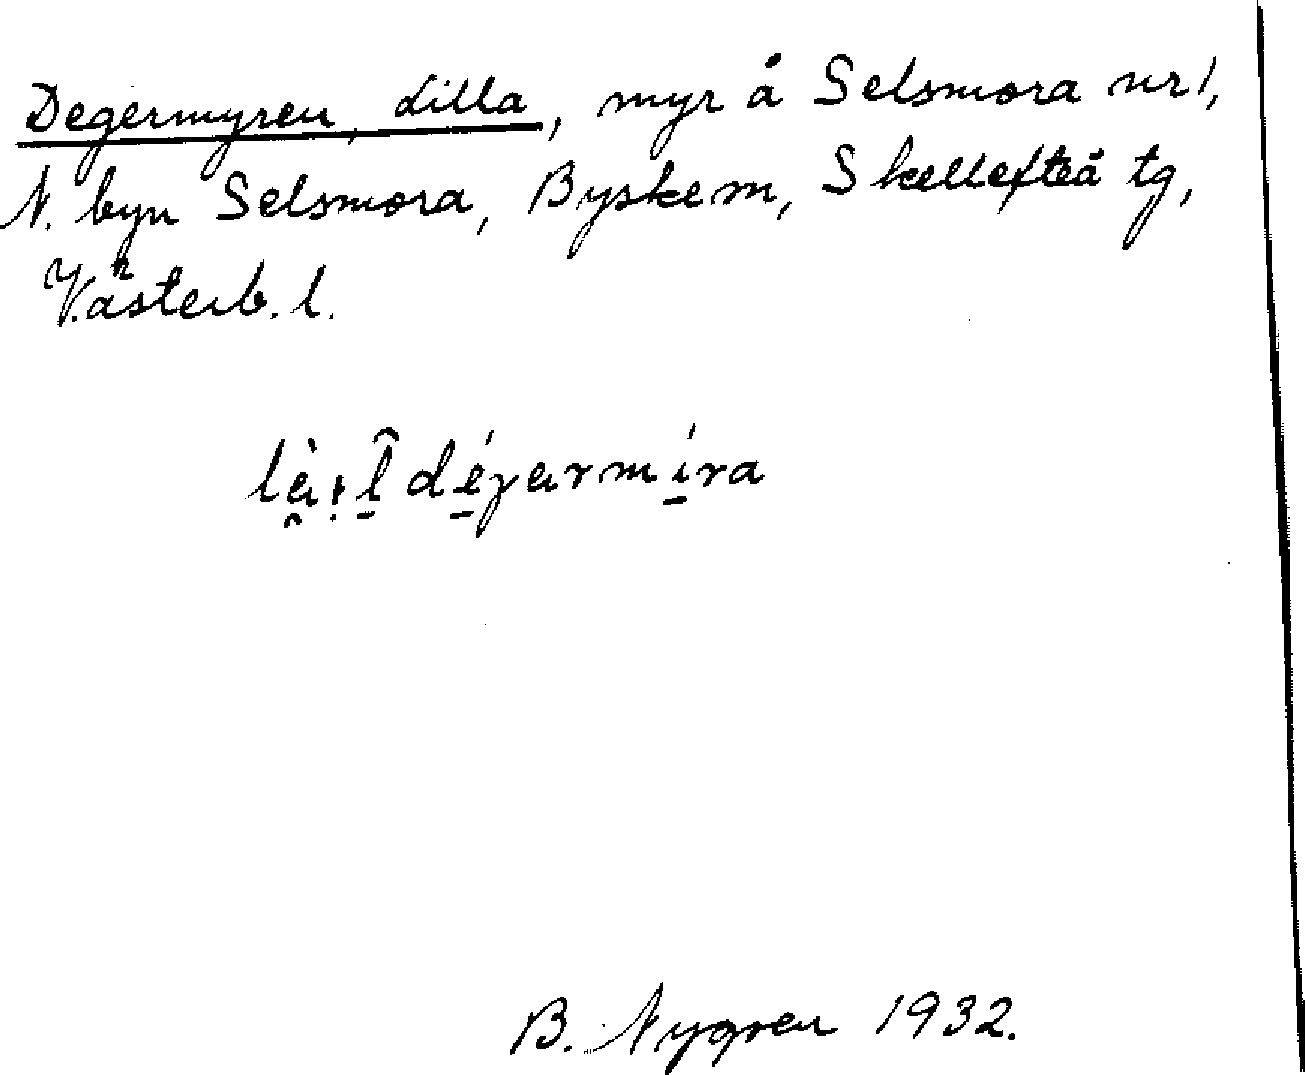 Degermyren, Lilla, myr å Selsmora nr 1,
N. byn Selsmora, Byske sn, Skellefteå tg,
Västerb. l.
B. Nygren 1932.